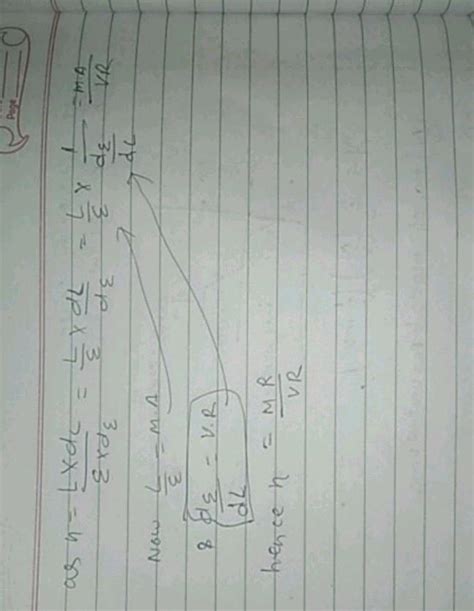 Page
as η = L×dL / E×dE = L/E × dL/dE = L/E × 1 / dE/dL = M.A / VR
Now L/E = M.A
& dE/dL = V.R
hence η = M.A / VR